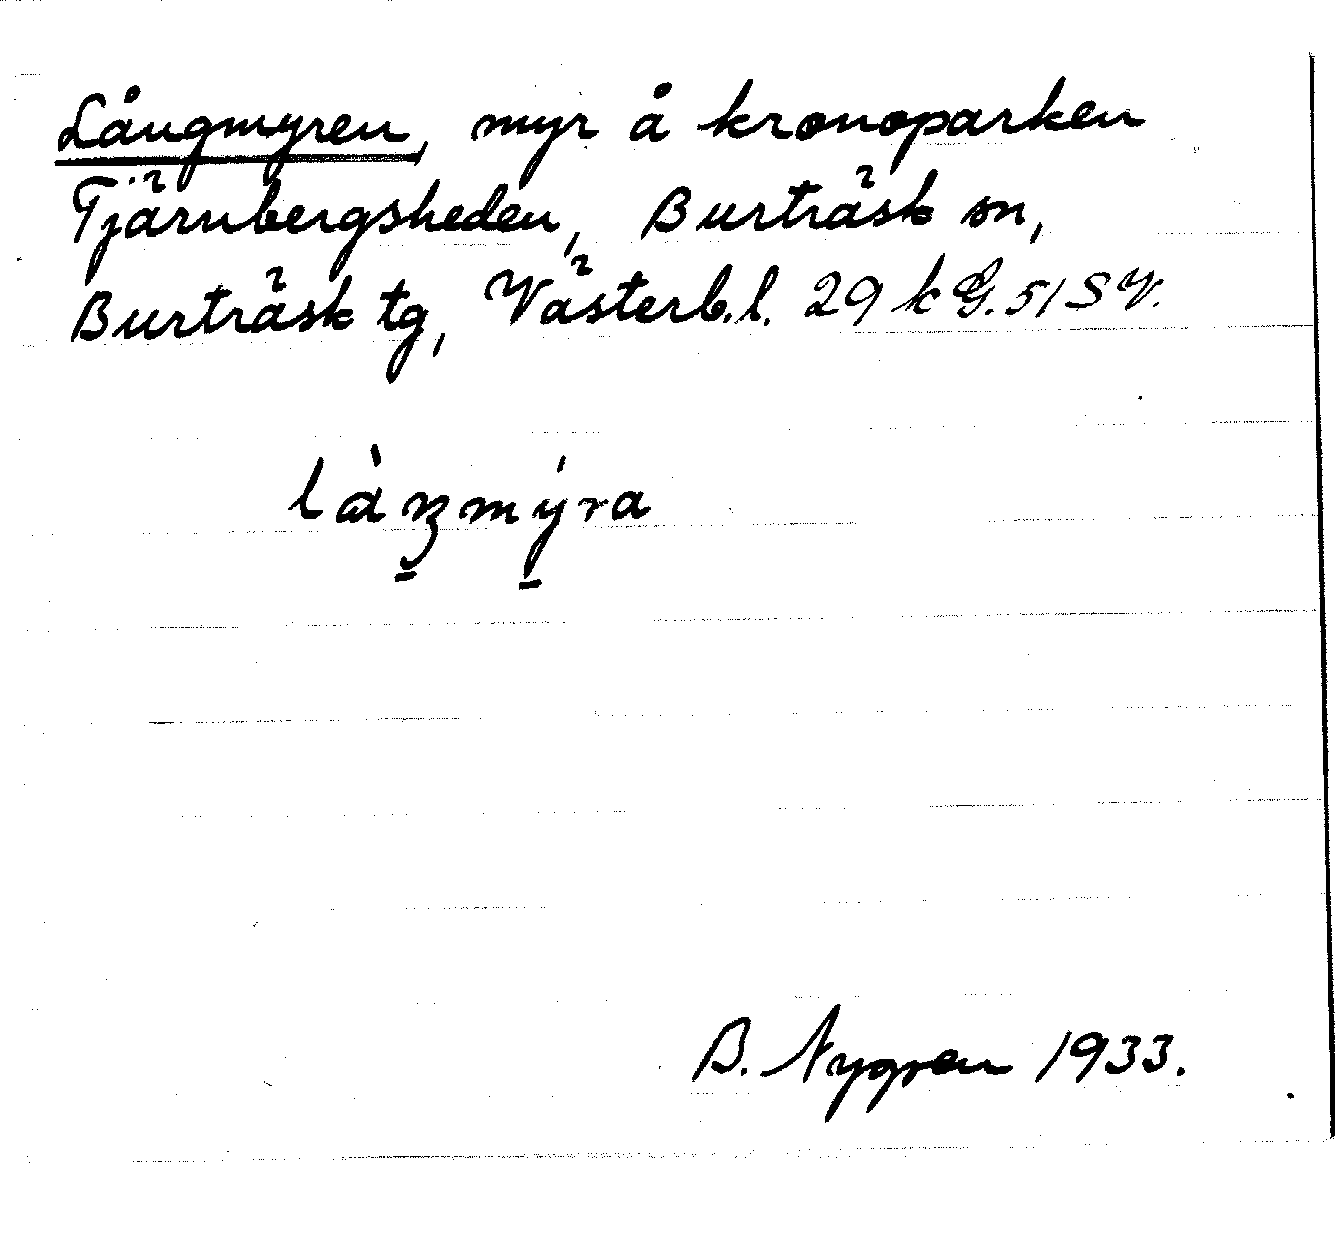 Långmyren, myr å kronoparken
Tjärnbergsheden, Burträsk sn,
Burträsk tg, Västerb.l. 29 k G. 51 SV.
B. Nygren 1933.